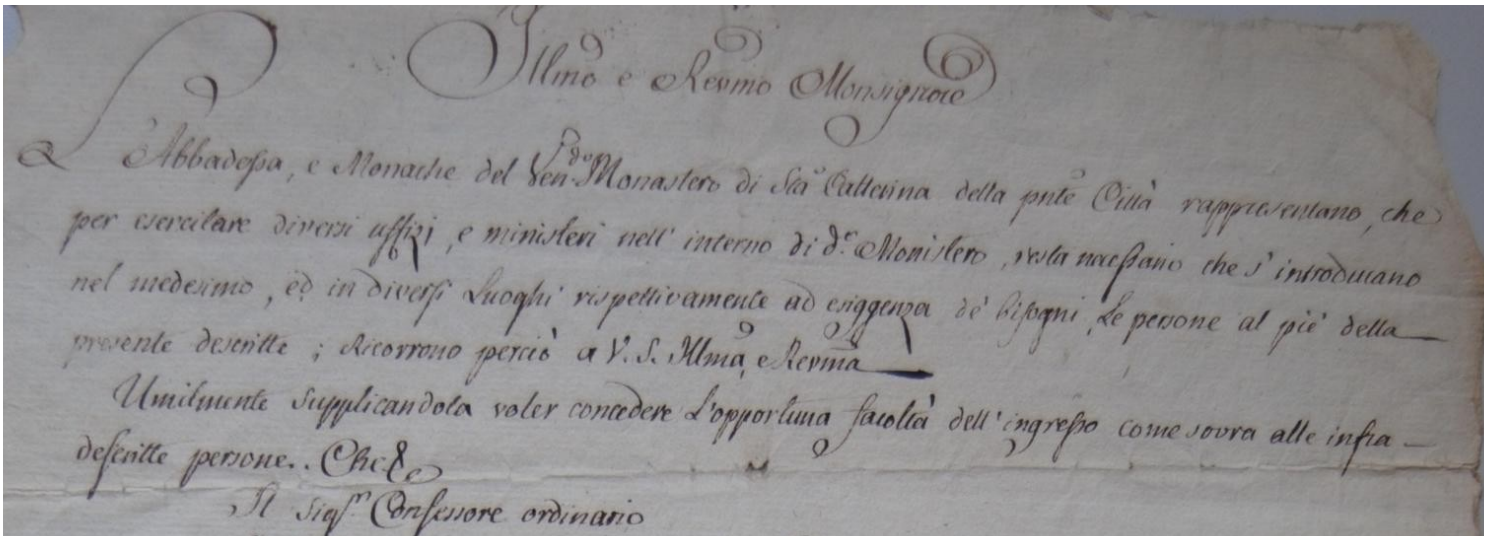 Illmo e Revmo Monsignore
L'Abbadessa, e Monache del Ven.do Monastero di Sta Catterina della pnte Città rappresentano, che
per esercitare diversi uffizi, e ministeri nell' interno di do. Monistero, resta necessario che s' introducano
nel medesimo, ed in diversi Luoghi rispettivamente ad esiggenza de' bisogni, Le persone al piè della
presente descritte; Ricorrono perciò a V. S. Illma, e Revma
Umilmente supplicandola voler concedere L'opportuna facoltà dell' ingresso come sovra alle infra-
descritte persone. Che &
Il Sigr Confessore ordinario